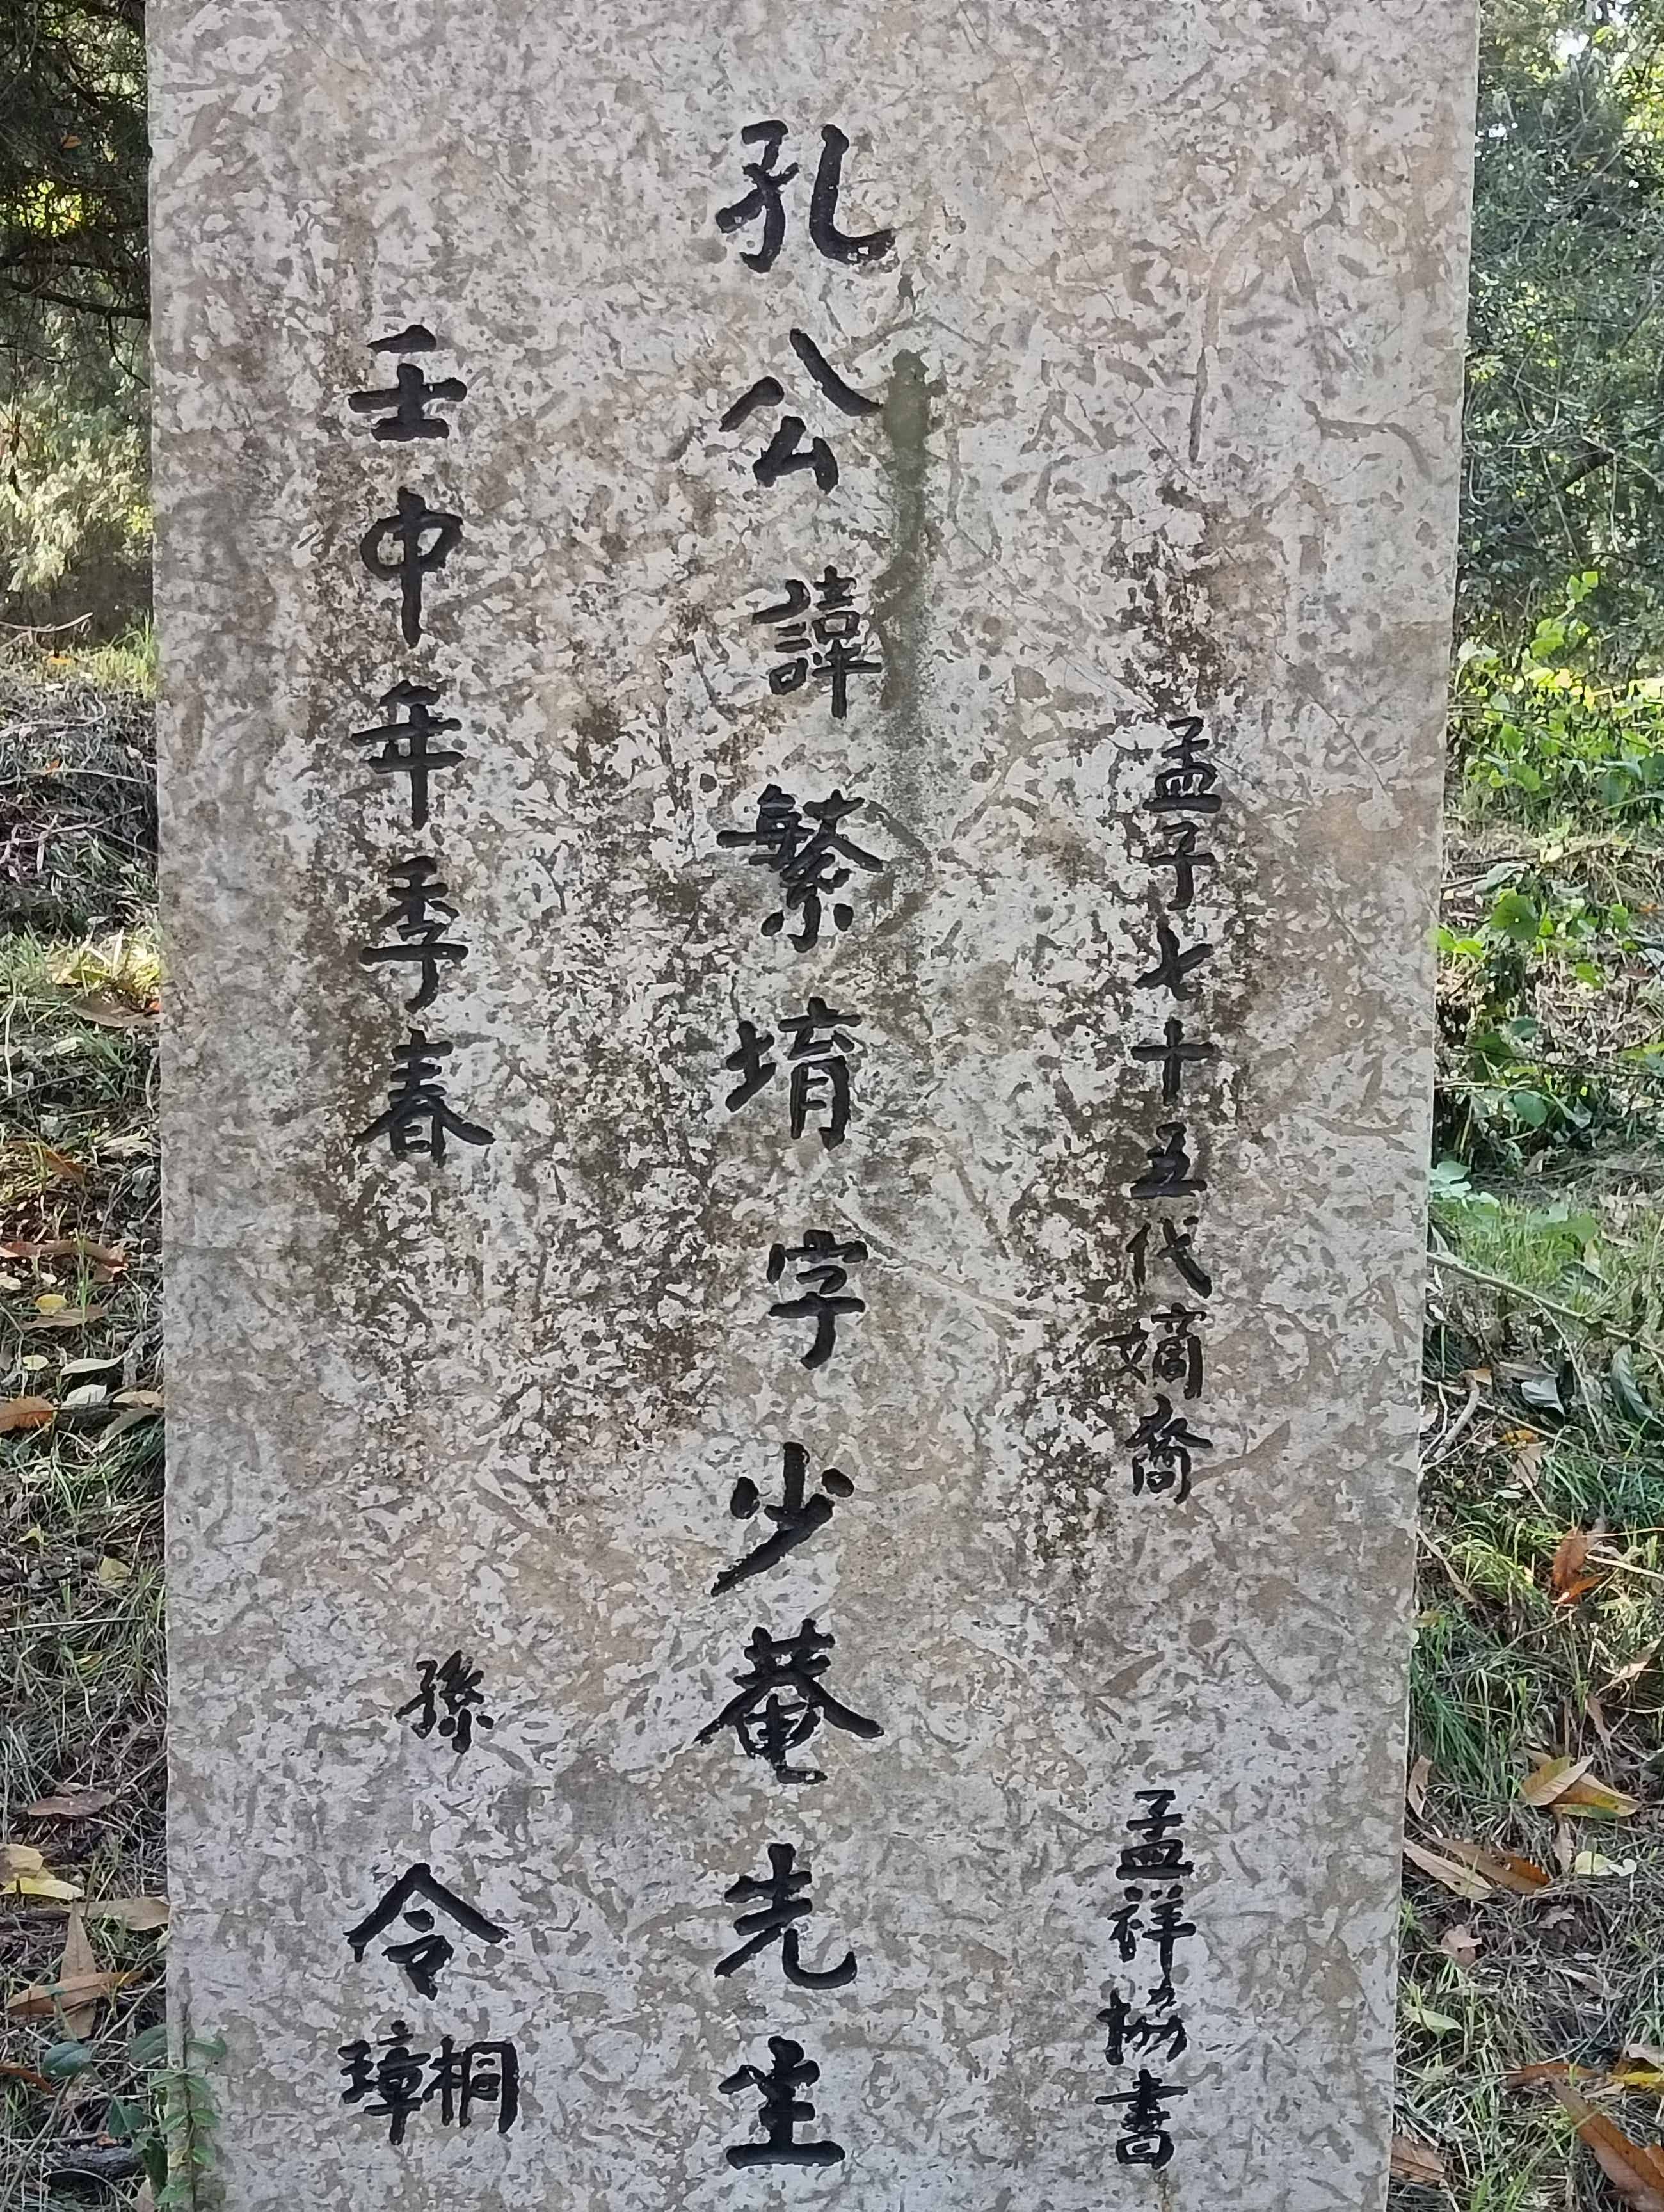 孟子七十五代嫡裔 孟祥協書
孔公諱繁堉字少菴先生
壬申年季春 孫 令桐璋